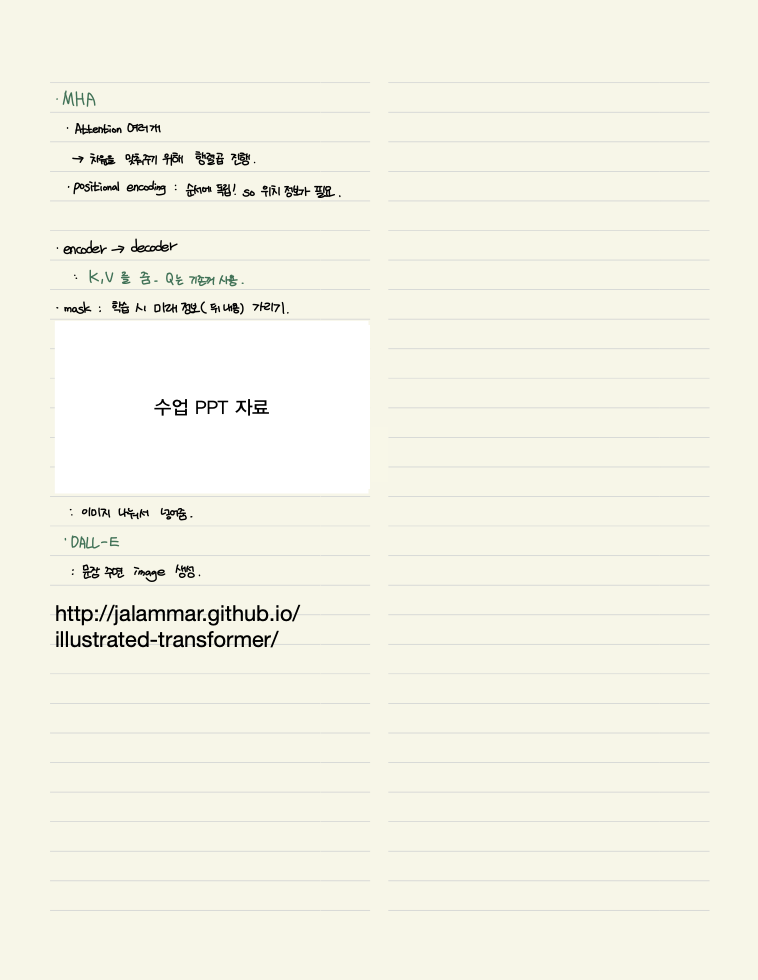 · MHA
· Attention 여러개
→ 차원을 맞춰주기 위해 행렬곱 진행.
· positional encoding : 순서에 독립! so 위치 정보가 필요.
· encoder → decoder
: K,V 를 줌. Q는 기존꺼 사용.
· mask : 학습 시 미래 정보(뒤 내용) 가리기.
수업 PPT 자료
: 이미지 나눠서 넣어줌.
· DALL-E
: 문장 주면 image 생성.
http://jalammar.github.io/
illustrated-transformer/